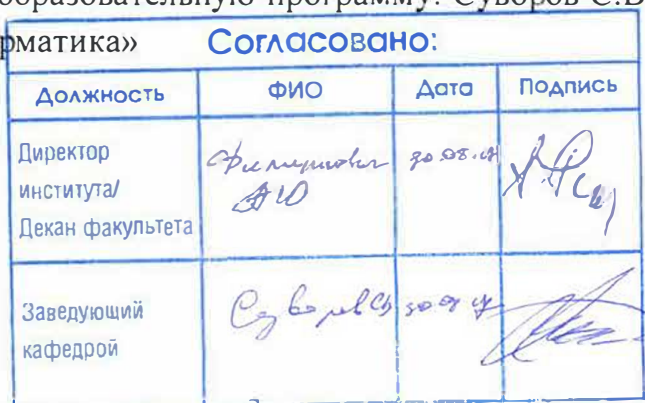 образовательную программу: Суворов С.В
рматика» Согласовано:
Должность ФИО Дата Подпись
Директор
института/
Декан факультета
Филиппович
АЮ
Заведующий
кафедрой
Суворов СВ